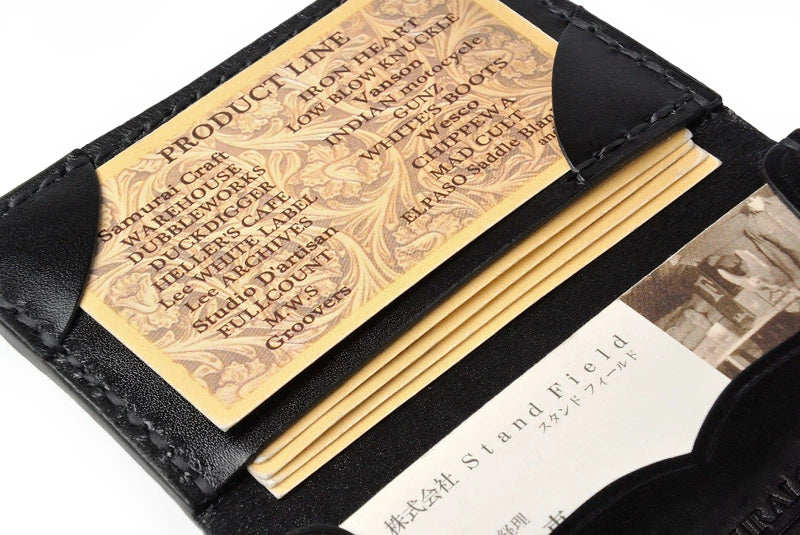 PRODUCT LINE
Samurai Craft
WAREHOUSE
DUBBLEWORKS
DUCKDIGGER
HELLER'S CAFE
Lee WHITE LABEL
Lee ARCHIVES
Studio D'artisan
FULLCOUNT
M.W.S
Groovers
IRON HEART
LOW BLOW KNUCKLE
Vanson
INDIAN motocycle
GUNZ
WHITE'S BOOTS
Wesco
CHIPPEWA
MAD CULT
ELPASO Saddle Blan
an
株式会社 Stand Field
スタンド フィールド
経理